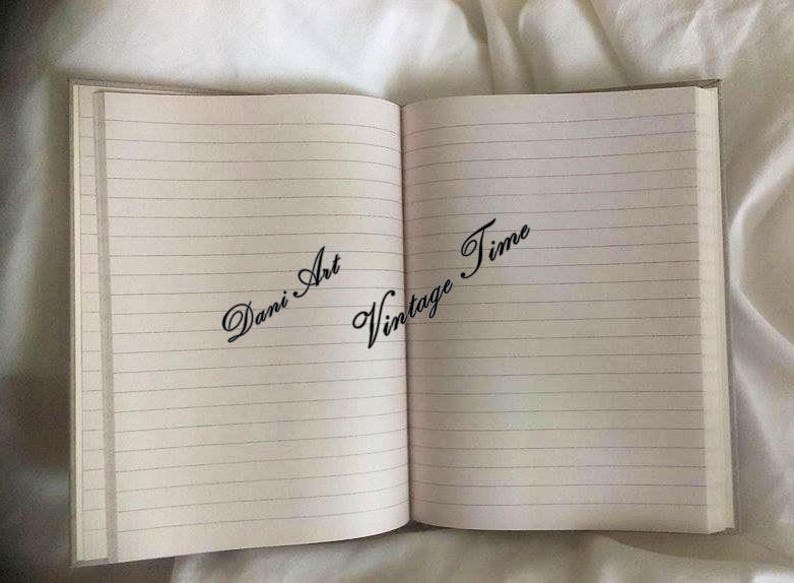 Dani Art
Vintage Time